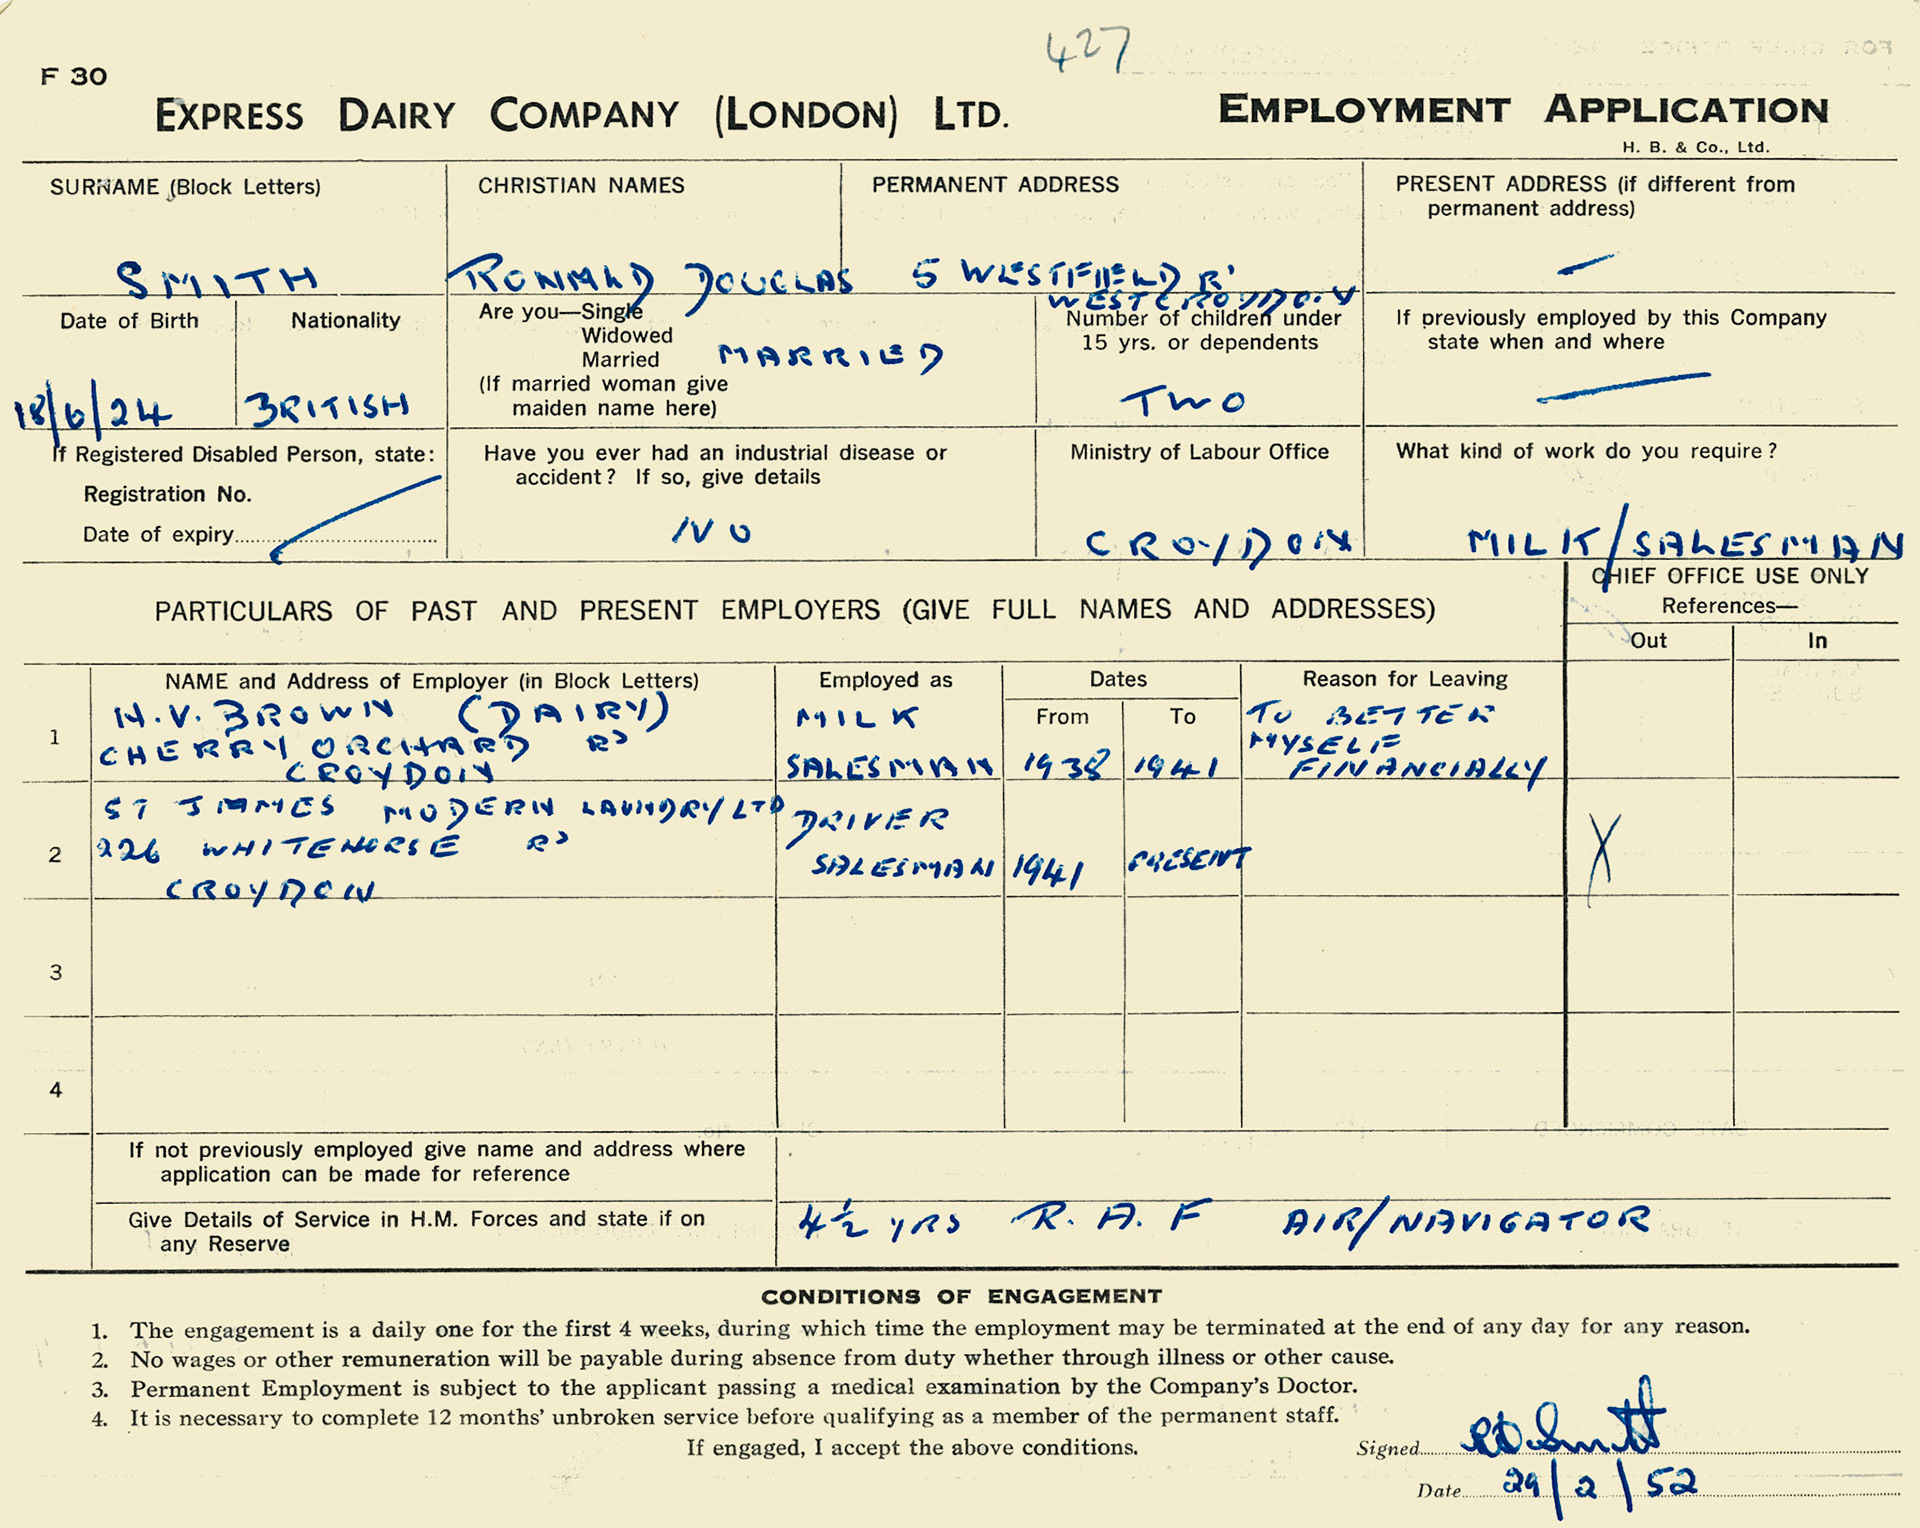 427
F 30
EXPRESS DAIRY COMPANY (LONDON) LTD.
EMPLOYMENT APPLICATION
H. B. & Co., Ltd.
SURNAME (Block Letters)
SMITH
CHRISTIAN NAMES
RONALD DOUGLAS
PERMANENT ADDRESS
5 WESTFIELD Rd
WEST CROYDON
PRESENT ADDRESS (if different from
permanent address)
—
Date of Birth
18/6/24
Nationality
BRITISH
Are you—Single
Widowed
Married MARRIED
(If married woman give
maiden name here)
Number of children under
15 yrs. or dependents
TWO
If previously employed by this Company
state when and where
—
If Registered Disabled Person, state:
Registration No.
Date of expiry
Have you ever had an industrial disease or
accident? If so, give details
NO
Ministry of Labour Office
CROYDON
What kind of work do you require?
MILK/SALESMAN
PARTICULARS OF PAST AND PRESENT EMPLOYERS (GIVE FULL NAMES AND ADDRESSES)
CHIEF OFFICE USE ONLY
References—
Out In
NAME and Address of Employer (in Block Letters)
Employed as
Dates
From To
Reason for Leaving
1
H.V. BROWN (DAIRY)
CHERRY ORCHARD Rd
CROYDON
MILK
SALESMAN
1938 1941
TO BETTER
MYSELF
FINANCIALLY
2
ST JAMES MODERN LAUNDRY LTD
226 WHITEHORSE Rd
CROYDON
DRIVER
SALESMAN
1941 PRESENT
X
3
4
If not previously employed give name and address where
application can be made for reference
Give Details of Service in H.M. Forces and state if on
any Reserve
4½ YRS R.A.F AIR/NAVIGATOR
CONDITIONS OF ENGAGEMENT
1. The engagement is a daily one for the first 4 weeks, during which time the employment may be terminated at the end of any day for any reason.
2. No wages or other remuneration will be payable during absence from duty whether through illness or other cause.
3. Permanent Employment is subject to the applicant passing a medical examination by the Company's Doctor.
4. It is necessary to complete 12 months' unbroken service before qualifying as a member of the permanent staff.
If engaged, I accept the above conditions.
Signed RD Smith
Date 29/2/52